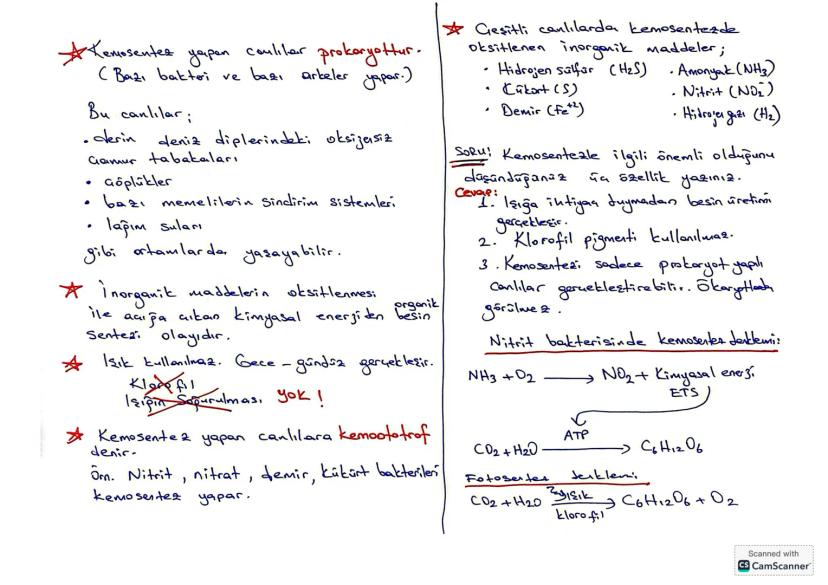 Kemosentez yapan canlılar prokaryottur.
(Bazı bakteri ve bazı arkeler yapar.)
Bu canlılar;
• derin deniz diplerindeki oksijensiz
çamur tabakaları
• çöplükler
• bazı memelilerin sindirim sistemleri
• lağım suları
gibi ortamlarda yaşayabilir.
İnorganik maddelerin oksitlenmesi
ile açığa çıkan kimyasal enerjiden organik besin
sentezi olayıdır.
Işık kullanılmaz. Gece - gündüz gerçekleşir.
Klorofil
Işığın Soğurulması YOK!
Kemosentez yapan canlılara kemoototrof
denir.
Örn. Nitrit, nitrat, demir, kükürt bakterileri
kemosentez yapar.
Çeşitli canlılarda kemosentezde
oksitlenen inorganik maddeler;
• Hidrojen sülfür (H2S) • Amonyak (NH3)
• Kükürt (S) • Nitrit (NO2⁻)
• Demir (Fe+2) • Hidrojen gazı (H2)
SORU! Kemosentezle ilgili önemli olduğunu
düşündüğünüz üç özellik yazınız.
Cevap:
1. Işığa ihtiyaç duymadan besin üretimi
gerçekleşir.
2. Klorofil pigmenti kullanılmaz.
3. Kemosentezi sadece prokaryot yapılı
canlılar gerçekleştirebilir. Ökaryotlarda
görülmez.
Nitrit bakterisinde kemosentez denklemi:
NH3 + O2 → NO2 + Kimyasal enerji
ETS
ATP
CO2 + H2O → C6H12O6
Fotosentez denklemi
CO2 + H2O ışık → C6H12O6 + O2
klorofil
Scanned with
CS CamScanner